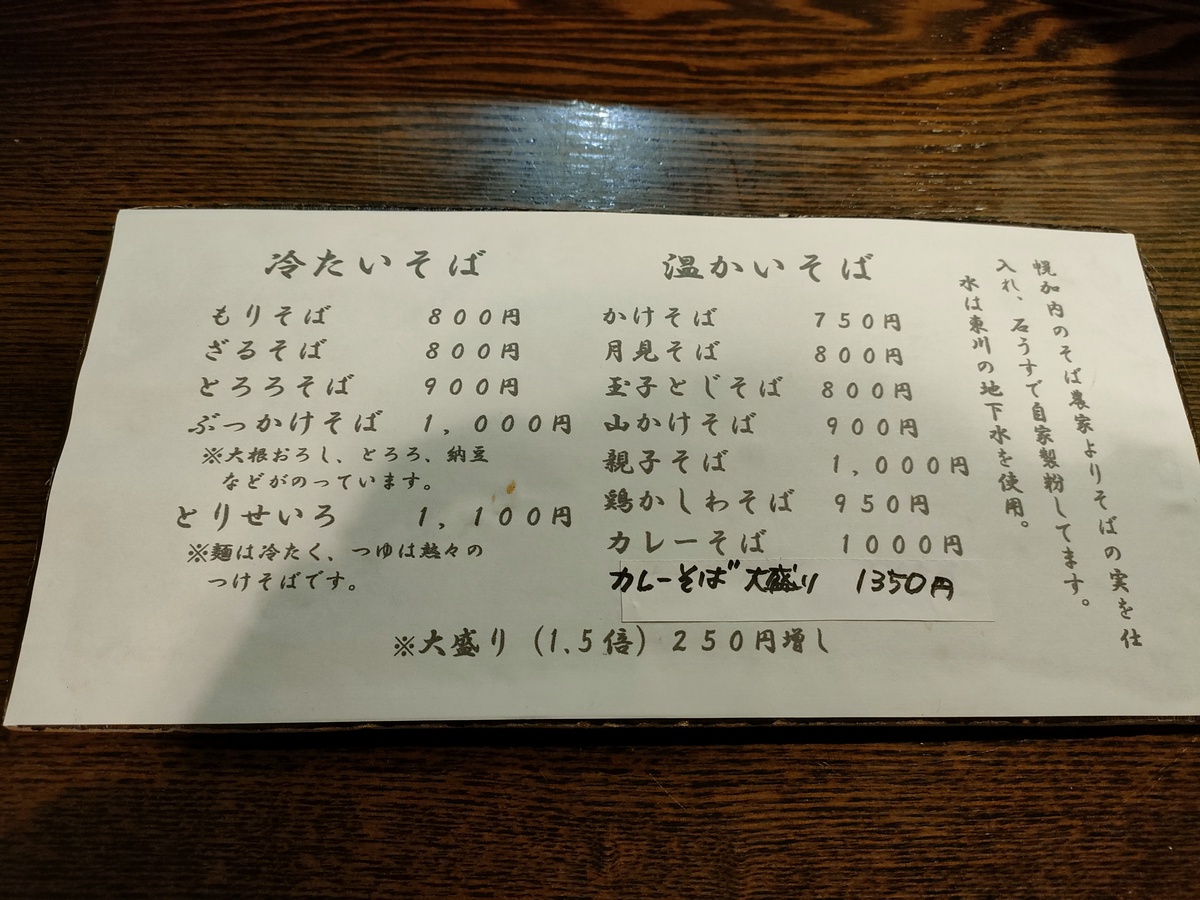 冷たいそば
もりそば 800円
ざるそば 800円
とろろそば 900円
ぶっかけそば 1,000円
※大根おろし、とろろ、納豆
などがのっています。
とりせいろ 1,100円
※麺は冷たく、つゆは熱々の
つけそばです。
温かいそば
かけそば 750円
月見そば 800円
玉子とじそば 800円
山かけそば 900円
親子そば 1,000円
鶏かしわそば 950円
カレーそば 1000円
カレーそば 大盛り 1350円
※大盛り(1.5倍)250円増し
幌加内のそば農家よりそばの実を仕
入れ、石うすで自家製粉してます。
水は東川の地下水を使用。